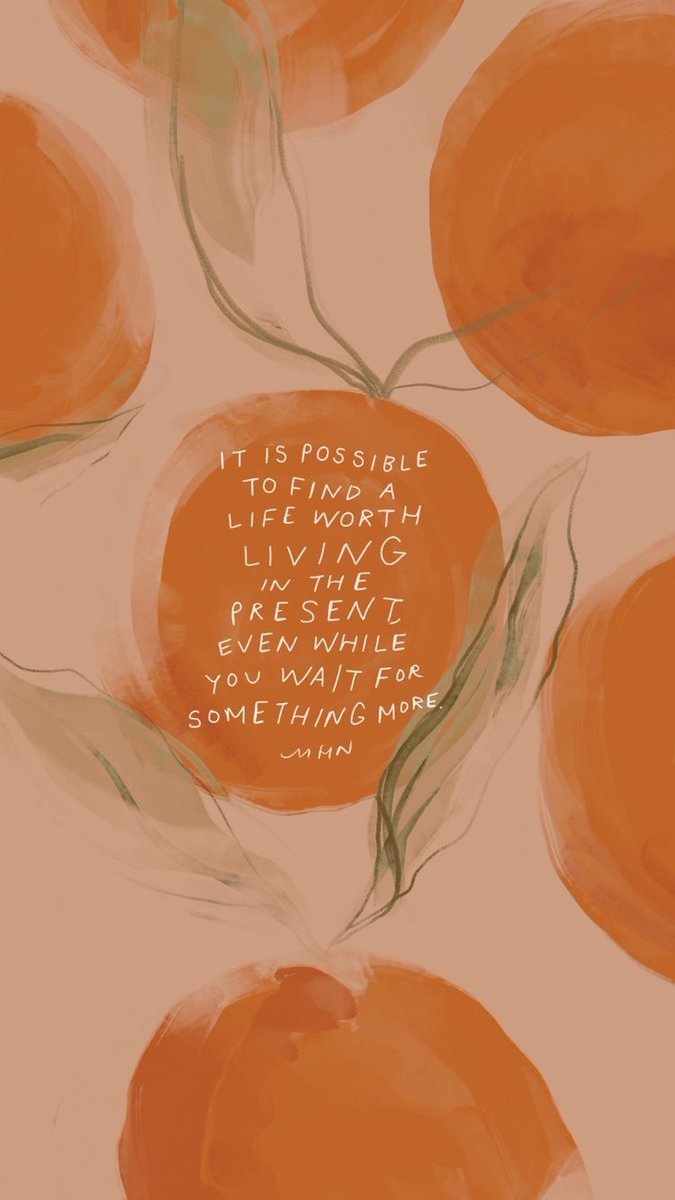 IT IS POSSIBLE
TO FIND A
LIFE WORTH
LIVING
IN THE
PRESENT,
EVEN WHILE
YOU WAIT FOR
SOMETHING MORE.
MHN